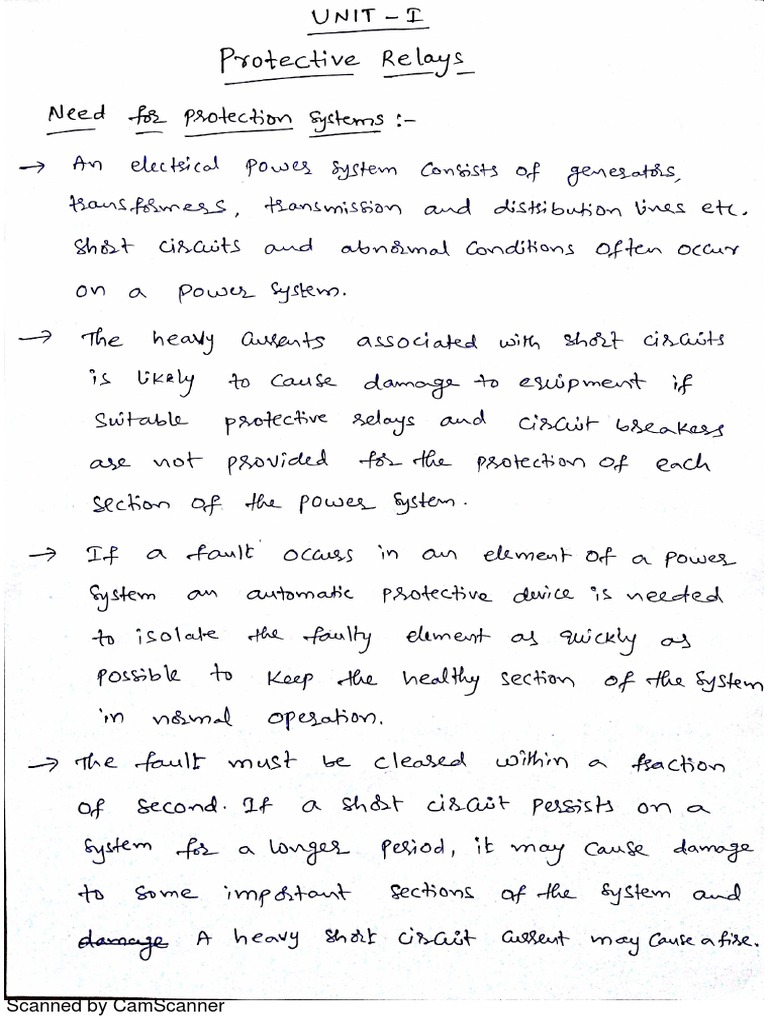 UNIT - I
Protective Relays
Need for protection systems :-
→ An electrical power system consists of generators,
transformers, transmission and distribution lines etc.
Short circuits and abnormal conditions often occur
on a power system.
→ The heavy currents associated with short circuits
is likely to cause damage to equipment if
suitable protective relays and circuit breakers
are not provided for the protection of each
section of the power system.
→ If a fault occurs in an element of a power
system an automatic protective device is needed
to isolate the faulty element as quickly as
possible to keep the healthy section of the system
in normal operation.
→ The fault must be cleared within a fraction
of second. If a short circuit persists on a
system for a longer period, it may cause damage
to some important sections of the system and
damage A heavy short circuit current may cause a fire.
Scanned by CamScanner